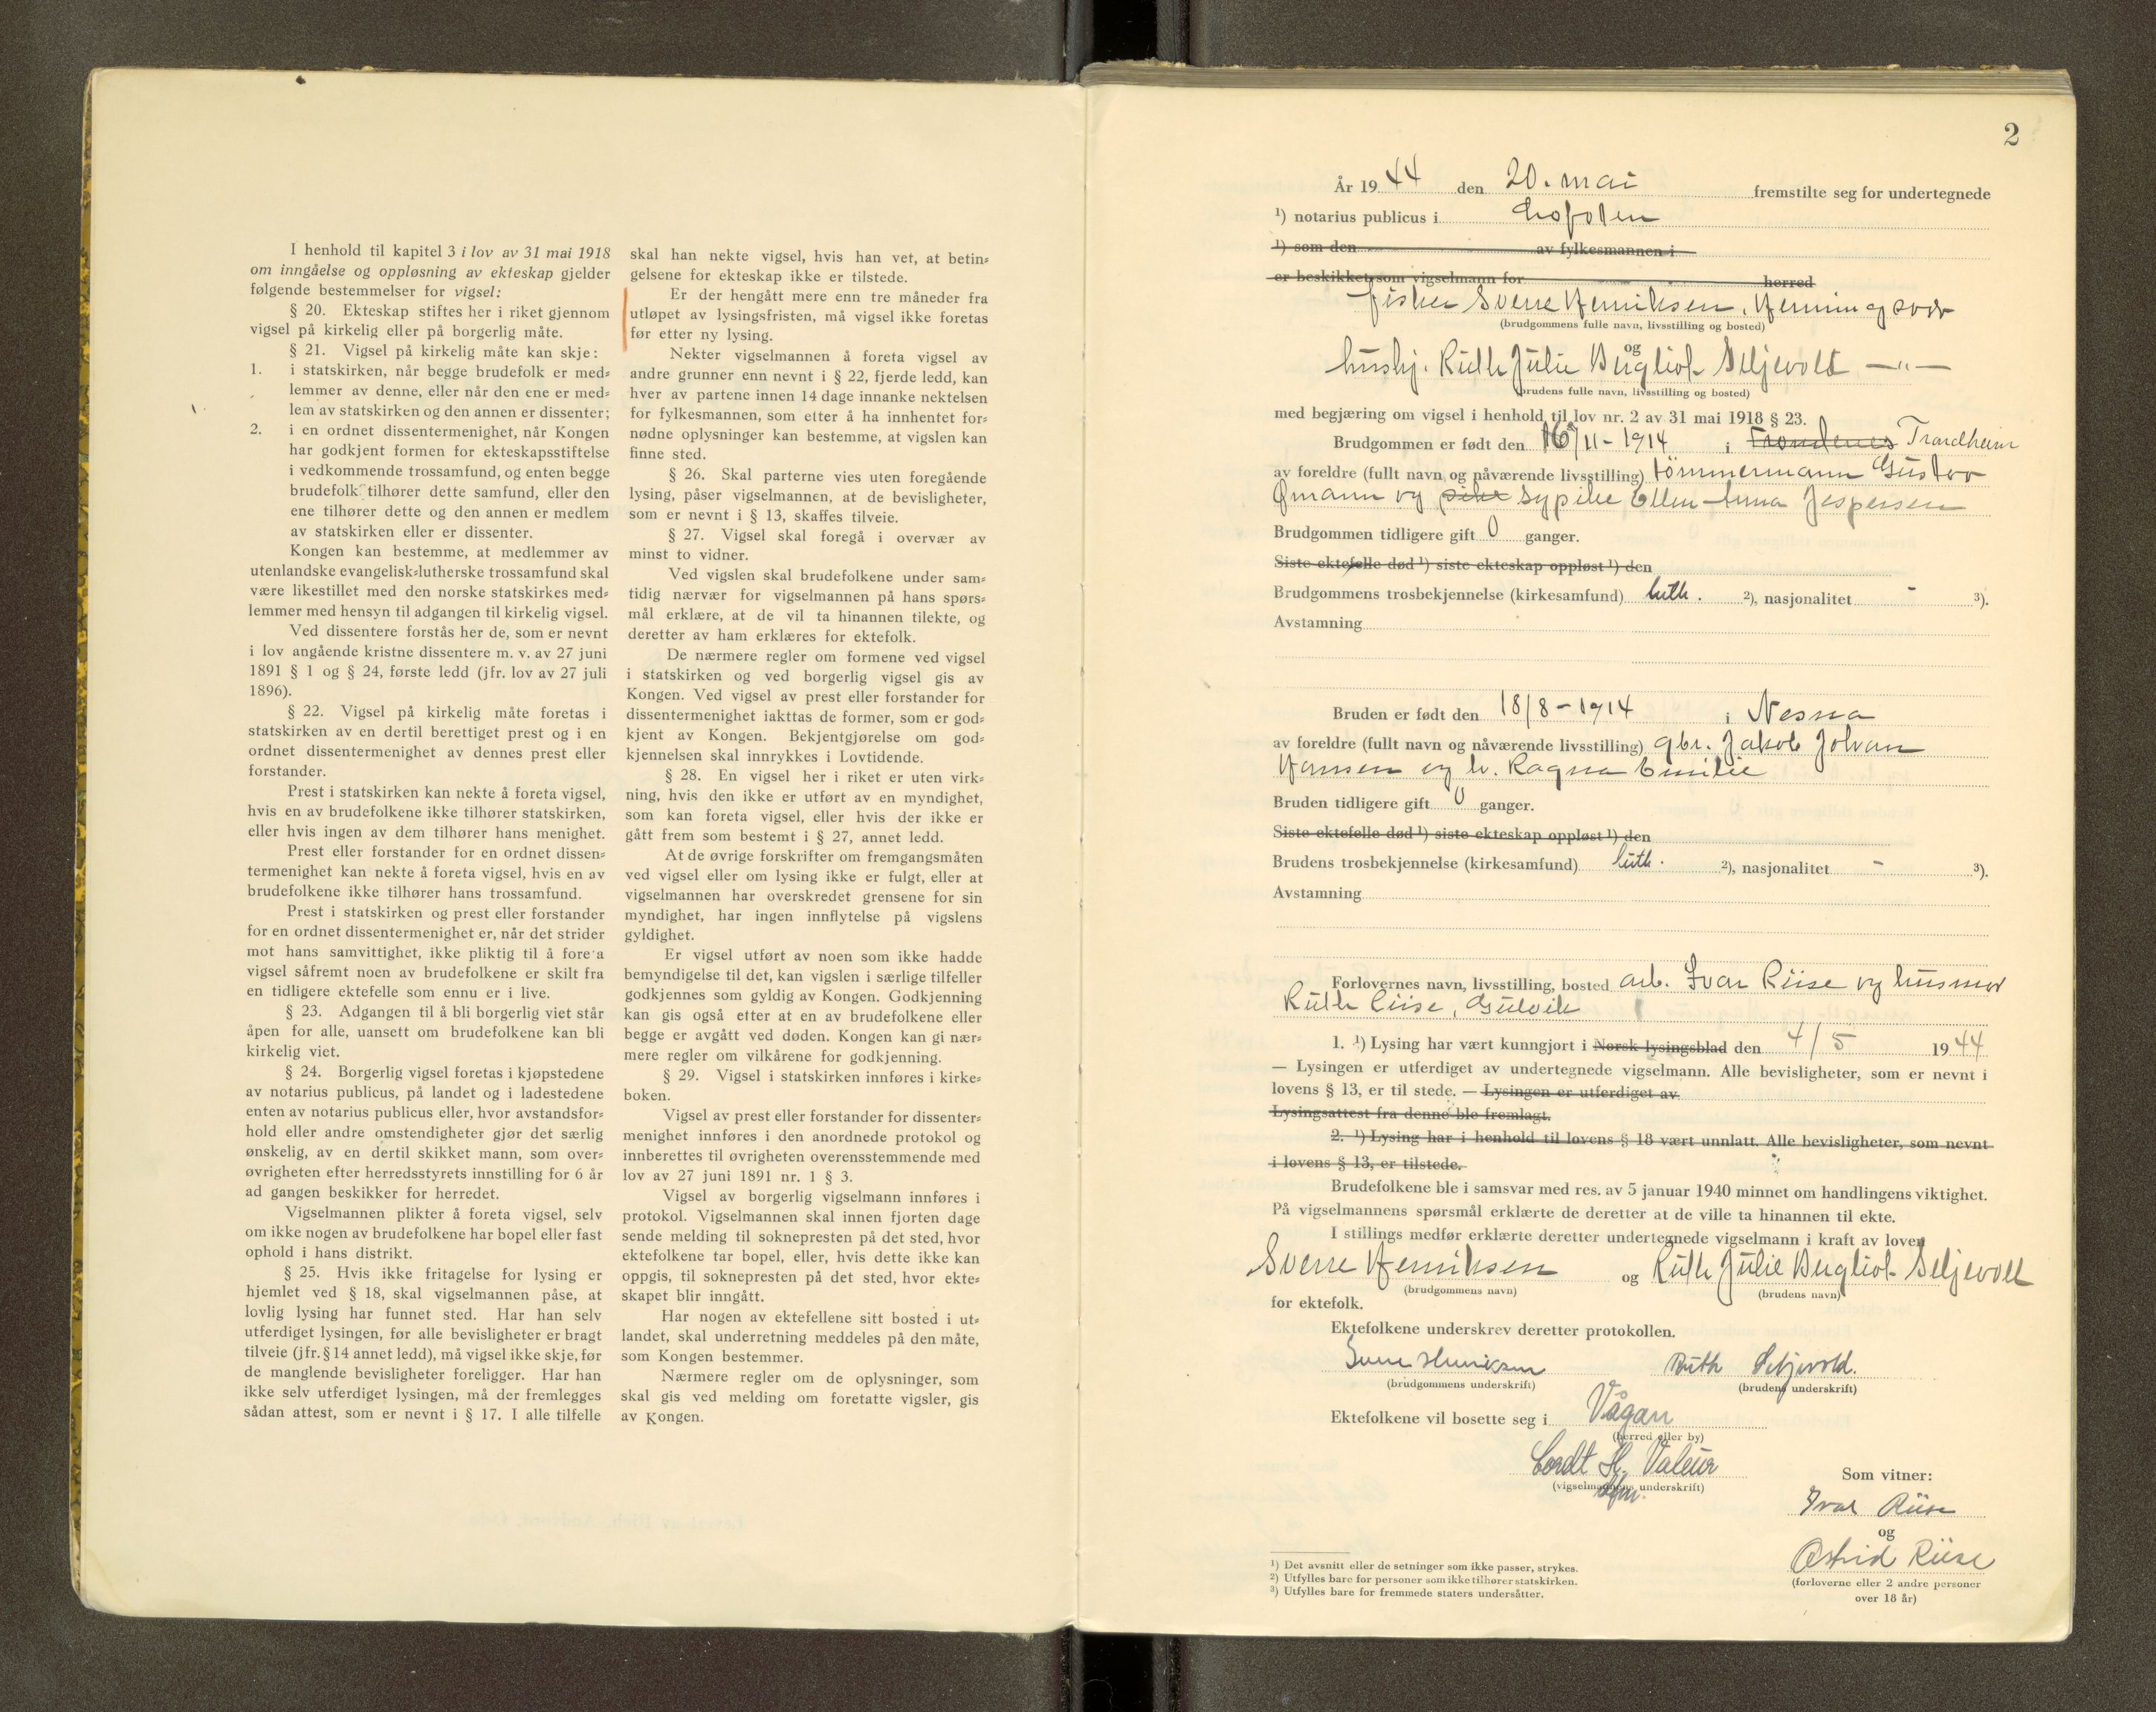 I henhold til kapitel 3 i lov av 31 mai 1918
om inngåelse og oppløsning av ekteskap gjelder
følgende bestemmelser for vigsel:
§ 20. Ekteskap stiftes her i riket gjennom
vigsel på kirkelig eller på borgerlig måte.
§ 21. Vigsel på kirkelig måte kan skje:
1. i statskirken, når begge brudefolk er med-
lemmer av denne, eller når den ene er med-
lem av statskirken og den annen er dissenter;
2. i en ordnet dissentermenighet, når Kongen
har godkjent formen for ekteskapsstiftelse
i vedkommende trossamfund, og enten begge
brudefolk tilhører dette samfund, eller den
ene tilhører dette og den annen er medlem
av statskirken eller er dissenter.
Kongen kan bestemme, at medlemmer av
utenlandske evangelisk-lutherske trossamfund skal
være likestillet med den norske statskirkes med-
lemmer med hensyn til adgangen til kirkelig vigsel.
Ved dissentere forstås her de, som er nevnt
i lov angående kristne dissentere m. v. av 27 juni
1891 § 1 og § 24, første ledd (jfr. lov av 27 juli
1896).
§ 22. Vigsel på kirkelig måte foretas i
statskirken av en dertil berettiget prest og i en
ordnet dissentermenighet av dennes prest eller
forstander.
Prest i statskirken kan nekte å foreta vigsel,
hvis en av brudefolkene ikke tilhører statskirken,
eller hvis ingen av dem tilhører hans menighet.
Prest eller forstander for en ordnet dissen-
termenighet kan nekte å foreta vigsel, hvis en av
brudefolkene ikke tilhører hans trossamfund.
Prest i statskirken og prest eller forstander
for en ordnet dissentermenighet er, når det strider
mot hans samvittighet, ikke pliktig til å fore a
vigsel såfremt noen av brudefolkene er skilt fra
en tidligere ektefelle som ennu er i live.
§ 23. Adgangen til å bli borgerlig viet står
åpen for alle, uansett om brudefolkene kan bli
kirkelig viet.
§ 24. Borgerlig vigsel foretas i kjøpstedene
av notarius publicus, på landet og i ladestedene
enten av notarius publicus eller, hvor avstandsfor-
hold eller andre omstendigheter gjør det særlig
ønskelig, av en dertil skikket mann, som over-
øvrigheten efter herredsstyrets innstilling for 6 år
ad gangen beskikker for herredet.
Vigselmannen plikter å foreta vigsel, selv
om ikke nogen av brudefolkene har bopel eller fast
ophold i hans distrikt.
§ 25. Hvis ikke fritagelse for lysing er
hjemlet ved § 18, skal vigselmannen påse, at
lovlig lysing har funnet sted. Har han selv
utferdiget lysingen, før alle bevisligheter er bragt
tilveie (jfr. § 14 annet ledd), må vigsel ikke skje, før
de manglende bevisligheter foreligger. Har han
ikke selv utferdiget lysingen, må der fremlegges
sådan attest, som er nevnt i § 17. I alle tilfelle
skal han nekte vigsel, hvis han vet, at betin-
gelsene for ekteskap ikke er tilstede.
Er der hengått mere enn tre måneder fra
utløpet av lysingsfristen, må vigsel ikke foretas
før etter ny lysing.
Nekter vigselmannen å foreta vigsel av
andre grunner enn nevnt i § 22, fjerde ledd, kan
hver av partene innen 14 dage innanke nektelsen
for fylkesmannen, som etter å ha innhentet for-
nødne oplysninger kan bestemme, at vigslen kan
finne sted.
§ 26. Skal parterne vies uten foregående
lysing, påser vigselmannen, at de bevisligheter,
som er nevnt i § 13, skaffes tilveie.
§ 27. Vigsel skal foregå i overvær av
minst to vidner.
Ved vigslen skal brudefolkene under sam-
tidig nærvær for vigselmannen på hans spørs-
mål erklære, at de vil ta hinannen tilekte, og
deretter av ham erklæres for ektefolk.
De nærmere regler om formene ved vigsel
i statskirken og ved borgerlig vigsel gis av
Kongen. Ved vigsel av prest eller forstander for
dissentermenighet iakttas de former, som er god-
kjent av Kongen. Bekjentgjørelse om god-
kjennelsen skal innrykkes i Lovtidende.
§ 28. En vigsel her i riket er uten virk-
ning, hvis den ikke er utført av en myndighet,
som kan foreta vigsel, eller hvis der ikke er
gått frem som bestemt i § 27, annet ledd.
At de øvrige forskrifter om fremgangsmåten
ved vigsel eller om lysing ikke er fulgt, eller at
vigselmannen har overskredet grensene for sin
myndighet, har ingen innflytelse på vigslens
gyldighet.
Er vigsel utført av noen som ikke hadde
bemyndigelse til det, kan vigslen i særlige tilfeller
godkjennes som gyldig av Kongen. Godkjenning
kan gis også etter at en av brudefolkene eller
begge er avgått ved døden. Kongen kan gi nær-
mere regler om vilkårene for godkjenning.
§ 29. Vigsel i statskirken innføres i kirke-
boken.
Vigsel av prest eller forstander for dissenter-
menighet innføres i den anordnede protokol og
innberettes til øvrigheten overensstemmende med
lov av 27 juni 1891 nr. 1 § 3.
Vigsel av borgerlig vigselmann innføres i
protokol. Vigselmannen skal innen fjorten dage
sende melding til soknepresten på det sted, hvor
ektefolkene tar bopel, eller, hvis dette ikke kan
oppgis, til soknepresten på det sted, hvor ekte-
skapet blir inngått.
Har nogen av ektefellene sitt bosted i ut-
landet, skal underretning meddeles på den måte,
som Kongen bestemmer.
Nærmere regler om de oplysninger, som
skal gis ved melding om foretatte vigsler, gis
av Kongen.
2
År 1944 den 20. mai fremstilte seg for undertegnede
1) notarius publicus i Lofoten
1) som den av fylkesmannen i
er beskikket som vigselmann for herred
fisker Sverre Henriksen, Henningsvær
(brudgommens fulle navn, livsstilling og bosted)
og
hushj. Ruth Julie Bugliot Seljevold —"—
(brudens fulle navn, livsstilling og bosted)
med begjæring om vigsel i henhold til lov nr. 2 av 31 mai 1918 § 23.
Brudgommen er født den 16/11-1914 i Trondenes Trondheim
av foreldre (fullt navn og nåværende livsstilling) tømmermann Gustav
Ømann og pike Sypike Ellen Anna Jespersen
Brudgommen tidligere gift 0 ganger.
Siste ektefelle død 1) siste ekteskap oppløst 1) den
Brudgommens trosbekjennelse (kirkesamfund) luth. 2), nasjonalitet - 3).
Avstamning
Bruden er født den 18/8-1914 i Nesna
av foreldre (fullt navn og nåværende livsstilling) gbr. Jakob Johan
Hansen og h. Ragna Emilie
Bruden tidligere gift 0 ganger.
Siste ektefelle død 1) siste ekteskap oppløst 1) den
Brudens trosbekjennelse (kirkesamfund) luth. 2), nasjonalitet - 3).
Avstamning
Forlovernes navn, livsstilling, bosted arb. Ivar Riise og husmor
Ruth Riise, Gulvik
1. 1) Lysing har vært kunngjort i Norsk lysingsblad den 4/5 1944
— Lysingen er utferdiget av undertegnede vigselmann. Alle bevisligheter, som er nevnt i
lovens § 13, er til stede. — Lysingen er utferdiget av
Lysingsattest fra denne ble fremlagt.
2. 1) Lysing har i henhold til lovens § 18 vært unnlatt. Alle bevisligheter, som nevnt
i lovens § 13, er tilstede.
Brudefolkene ble i samsvar med res. av 5 januar 1940 minnet om handlingens viktighet.
På vigselmannens spørsmål erklærte de deretter at de ville ta hinannen til ekte.
I stillings medfør erklærte deretter undertegnede vigselmann i kraft av loven
Sverre Henriksen og Ruth Julie Bugliot Seljevold
(brudgommens navn) (brudens navn)
for ektefolk.
Ektefolkene underskrev deretter protokollen.
Sverre Henriksen Ruth Seljevold.
(brudgommens underskrift) (brudens underskrift)
Ektefolkene vil bosette seg i Vågan
(herred eller by)
Cordt H. Valeur
(vigselmannens underskrift)
Som vitner:
Ivar Riise
og
Astrid Riise
(forloverne eller 2 andre personer
over 18 år)
1) Det avsnitt eller de setninger som ikke passer, strykes.
2) Utfylles bare for personer som ikke tilhører statskirken.
3) Utfylles bare for fremmede staters undersåtter.